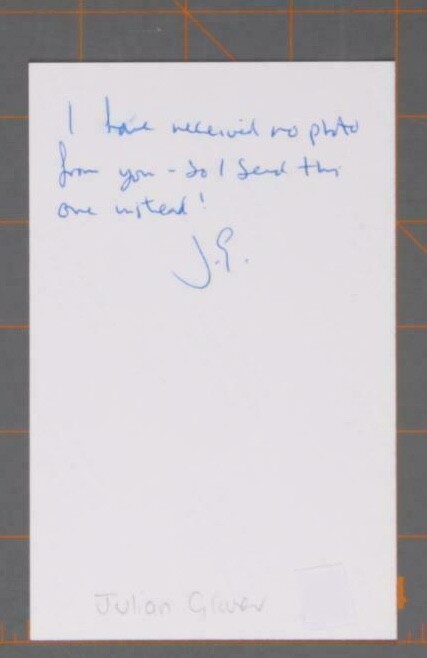 I have received no photo
from you - so I send this
one instead!
J.G.
Julian Glover